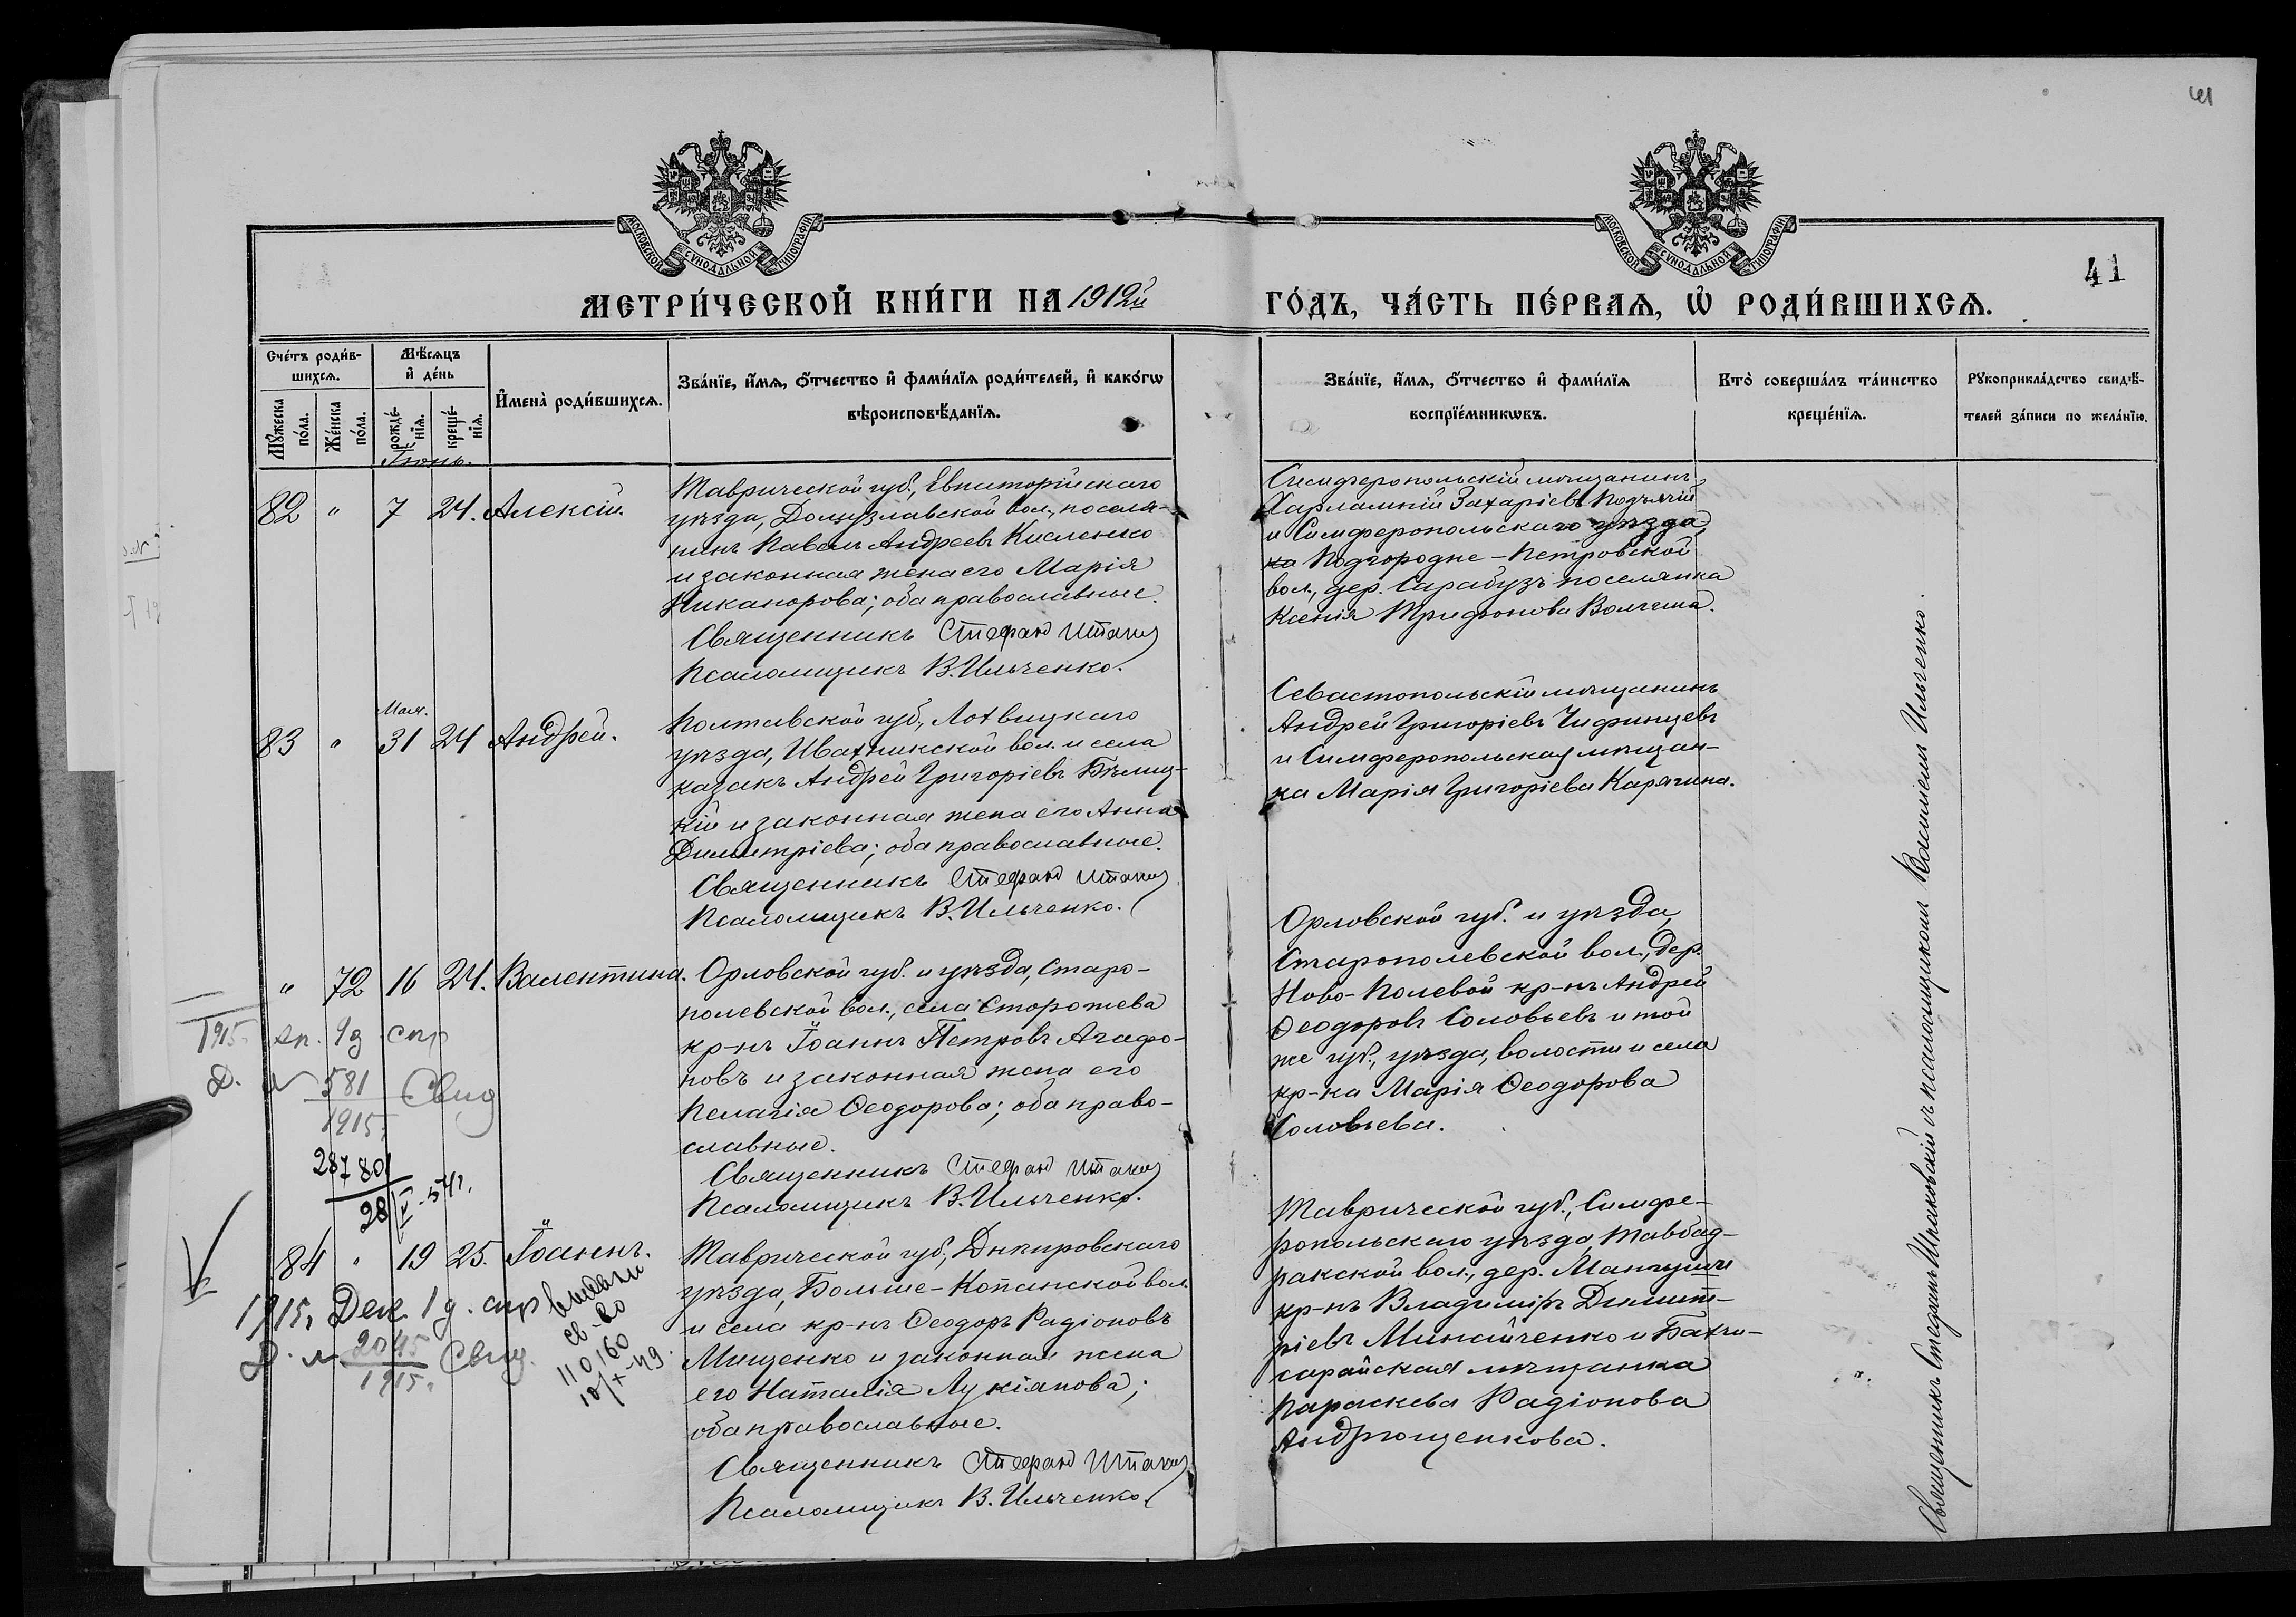 41
41
МОСКОВСКОЙ СѴНОДАЛЬНОЙ ТИПОГРАФІИ
МОСКОВСКОЙ СѴНОДАЛЬНОЙ ТИПОГРАФІИ
МЕТРИ́ЧЕСКОЙ КНИ́ГИ НА 1912й
ГО́ДЪ, ЧА́СТЬ ПЕ́РВАѦ, Ѡ҆ РОДИ́ВШИХСѦ.
Сче́тъ роди́в-
шихсѧ.
Мꙋ́жеска
по́ла.
Же́нска
по́ла.
Мѣ́сѧцъ
и҆ де́нь
рожде́-
нїѧ.
креще́-
нїѧ.
И҆мена̀ роди́вшихсѧ.
Зва́нїе, и҆́мѧ, ѻ҆́тчество и҆ фами́лїѧ роди́телей, и҆ како́гѡ
вѣроисповѣ́данїѧ.
Зва́нїе, и҆́мѧ, ѻ҆́тчество и҆ фами́лїѧ
воспрїе́мникѡвъ.
Кто̀ соверша́лъ та́инство
креще́нїѧ.
Рꙋкоприкла́дство свидѣ́-
телей за́писи по жела́нїю.
Іюнь.
82 " 7 24. Алексій.
Таврической губ., Евпаторійскаго
уѣзда, Донузлавской вол., поселя-
нинъ Павелъ Андреевъ Кисленко
и законная жена его Марія
Никанорова; оба православные.
Священникъ Стефанъ
Псаломщикъ В. Ильченко.
Симферопольскій мѣщанинъ
Харлампій Захаріевъ Подъячій
и Симферопольскаго уѣзда,
ка Подгородне-Петровской
вол., дер. Сарабузъ поселянка
Ксенія Трифонова Волгина.
Мая.
83 " 31 24 Андрей.
Полтавской губ., Лохвицкаго
уѣзда, Ивахникской вол. и села
казакъ Андрей Григоріевъ Бѣлиц-
кій и законная жена его Анна
Димитріева; оба православные.
Священникъ Стефанъ
Псаломщикъ В. Ильченко.
Севастопольскій мѣщанинъ
Андрей Григоріевъ Чифинцевъ
и Симферопольская мѣщан-
ка Марія Григоріева Карягина.
" 72 16 24. Валентина.
Орловской губ. и уѣзда, Старо-
полевской вол., села Сторожева
кр-нъ Іоаннъ Петровъ Агафо-
новъ и законная жена его
Пелагія Ѳеодорова; оба право-
славные.
Священникъ Стефанъ
Псаломщикъ В. Ильченко.
Орловской губ. и уѣзда,
Старополевской вол., дер.
Ново-Полевой кр-нъ Андрей
Ѳеодоровъ Соловьевъ и той
же губ., уѣзда, волости и села
кр-ка Марія Ѳеодорова
Соловьева.
1915. Ап. 19 спр
Д. № 581 Свид
1915.
287801
28/V-54г.
84 " 19 25. Іоаннъ.
Таврической губ., Днѣпровскаго
уѣзда, Больше-Копанской вол.
и села кр-нъ Ѳеодоръ Радіоновъ
Мищенко и законная жена
его Наталія Лукіянова;
оба православные.
Священникъ Стефанъ
Псаломщикъ В. Ильченко
Таврической губ., Симфе-
ропольскаго уѣзда, Тавбад-
ракской вол., дер. Мангуши
кр-нъ Владиміръ Димит-
ріевъ Минайченко и Бахчи-
сарайская мѣщанка
Параскева Радіонова
Андрющенкова.
1915, Дек. 1 д. спр
Д. № 2045 Свид.
1915.
выдали
св-во
110160
10/X-49.
Священникъ Стефанъ съ псаломщикомъ Василіемъ Ильченко.